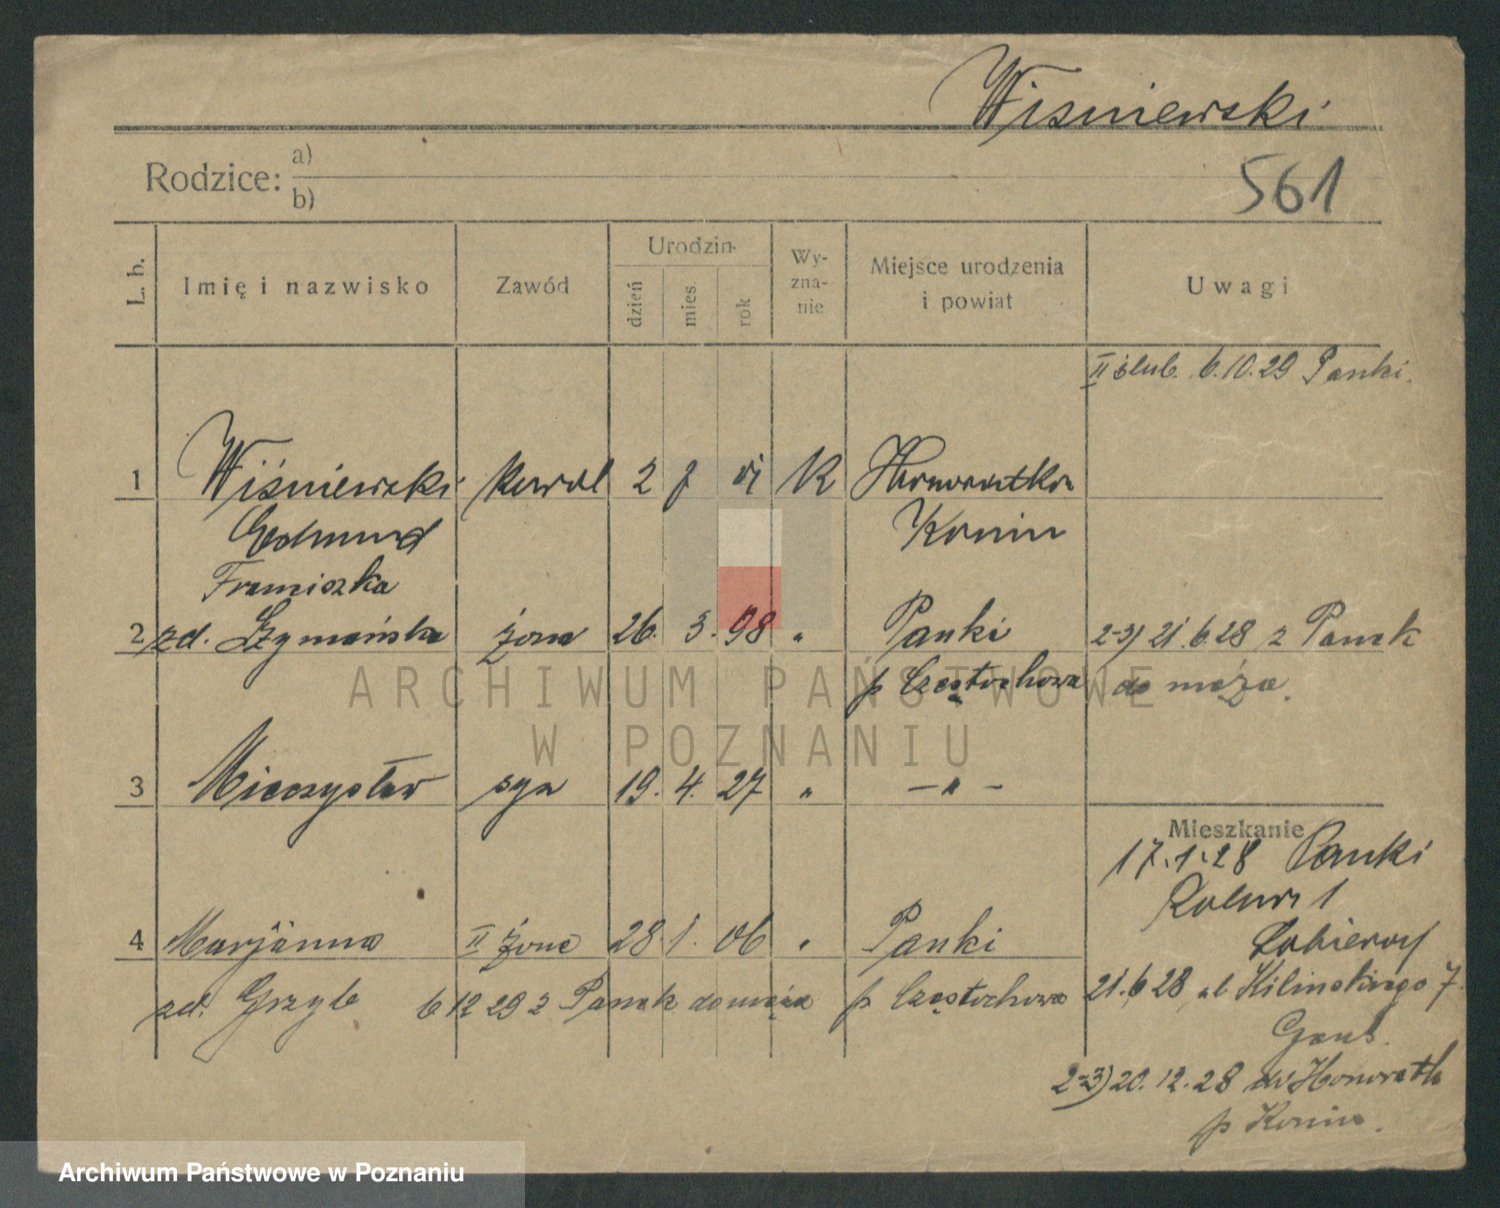 Wiśniewski
Rodzice: a)
b)
561
L. b.
Imię i nazwisko
Zawód
Urodzin
dzień
mies.
rok
Wy-
zna-
nie
Miejsce urodzenia
i powiat
Uwagi
II ślub. 6.10.29 Panki.
1 Wiśniewski kowal 2 7 01 K Honoratka
Edmund Konin
Franciszka
2 zd. Szymańska żona 26. 3. 98 " Panki 2-3) 21.6 28 z Panek
p Częstochowa do męża.
3 Mieczysław syn 19. 4. 27 " — " —
Mieszkanie
17.1.28 Panki
1
4 Marjanna II żona 28 1. 06 " Panki
zd. Grzyb 6 12 29 z Panek do męża p Częstochowa 21.6 28 ul Kilińskiego 7.
2-3) 20.12.28 do Honoratk
p Konin.
ARCHIWUM PAŃSTWOWE
W POZNANIU
Archiwum Państwowe w Poznaniu